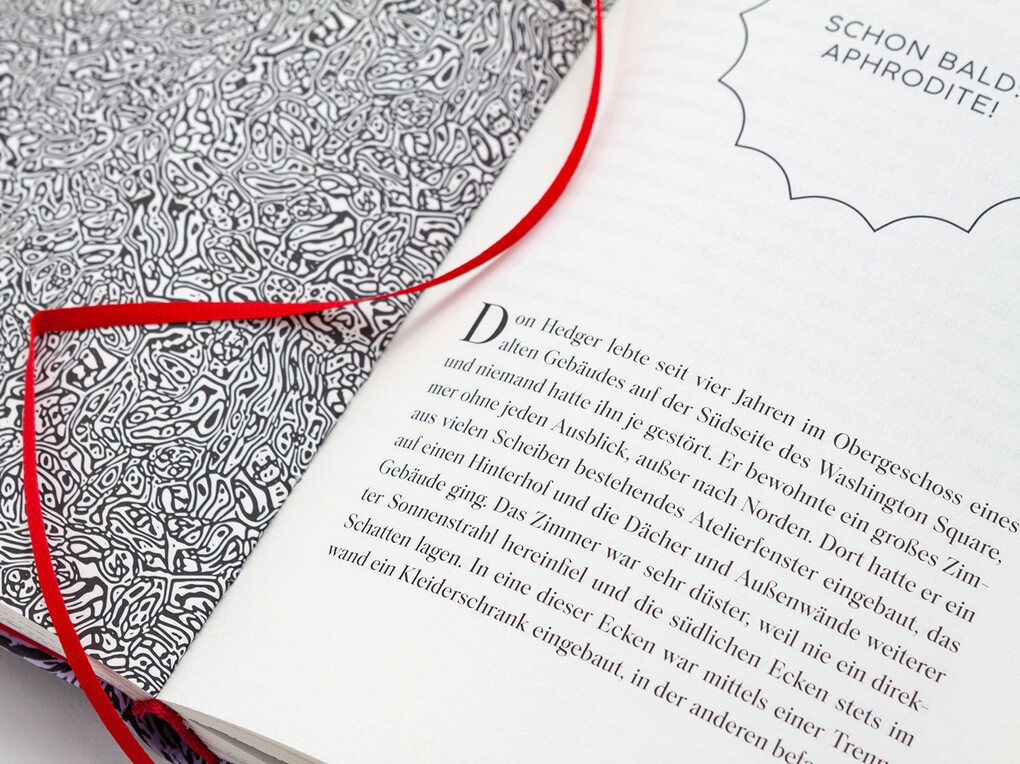 SCHON BALD,
APHRODITE!
Don Hedger lebte seit vier Jahren im Obergeschoss eines
alten Gebäudes auf der Südseite des Washington Square,
und niemand hatte ihn je gestört. Er bewohnte ein großes Zim-
mer ohne jeden Ausblick, außer nach Norden. Dort hatte er ein
aus vielen Scheiben bestehendes Atelierfenster eingebaut, das
auf einen Hinterhof und die Dächer und Außenwände weiterer
Gebäude ging. Das Zimmer war sehr düster, weil nie ein direk-
ter Sonnenstrahl hereinfiel und die südlichen Ecken stets im
Schatten lagen. In eine dieser Ecken war mittels einer Trenn
wand ein Kleiderschrank eingebaut, in der anderen